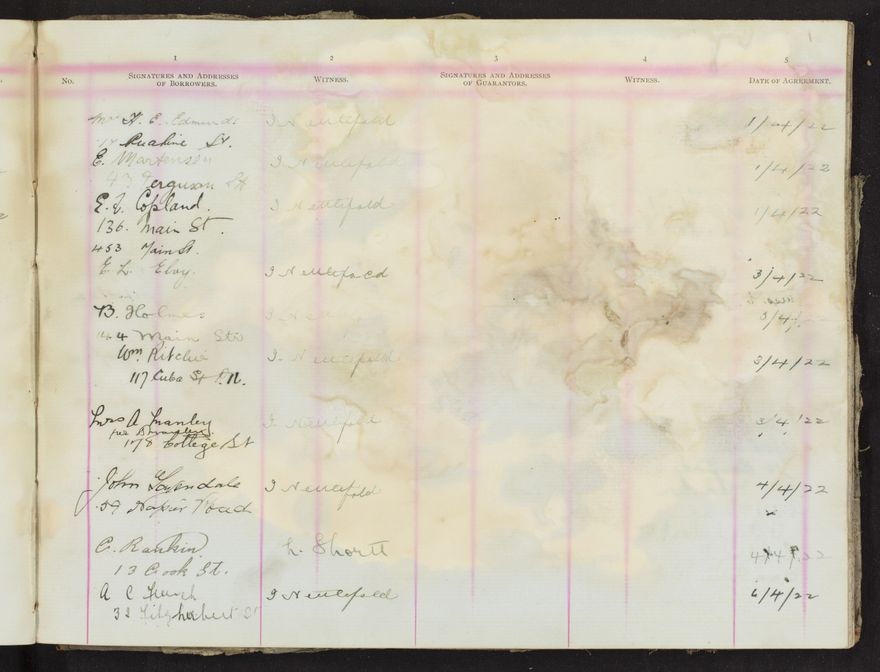 1 2 3 4 5
No. SIGNATURES AND ADDRESSES OF BORROWERS. WITNESS. SIGNATURES AND ADDRESSES OF GUARANTORS. WITNESS. DATE OF AGREEMENT.
Mrs H. E. Edmunds I Nettlefold 1/4/22
Ruahine St.
E. Martensen I Nettlefold 1/4/22
43 Ferguson St
E. J. Copland. I Nettlefold 1/4/22
136. Main St.
453 Main St.
E L I Nettlefold 3/4/22
B. Holmes I 3/4/
Main Str
Wm Ritchie I Nettlefold 3/4/22
117 Cuba St P.N.
Mrs A Manley I Nettlefold 3/4/22
per
178 College St
John I Nettlefold 4/4/22
59 Napier Road
C. Rankin L. Shortt 4/4/22
13 Cook St.
A C French I Nettlefold 6/4/22
32 Fitzherbert St